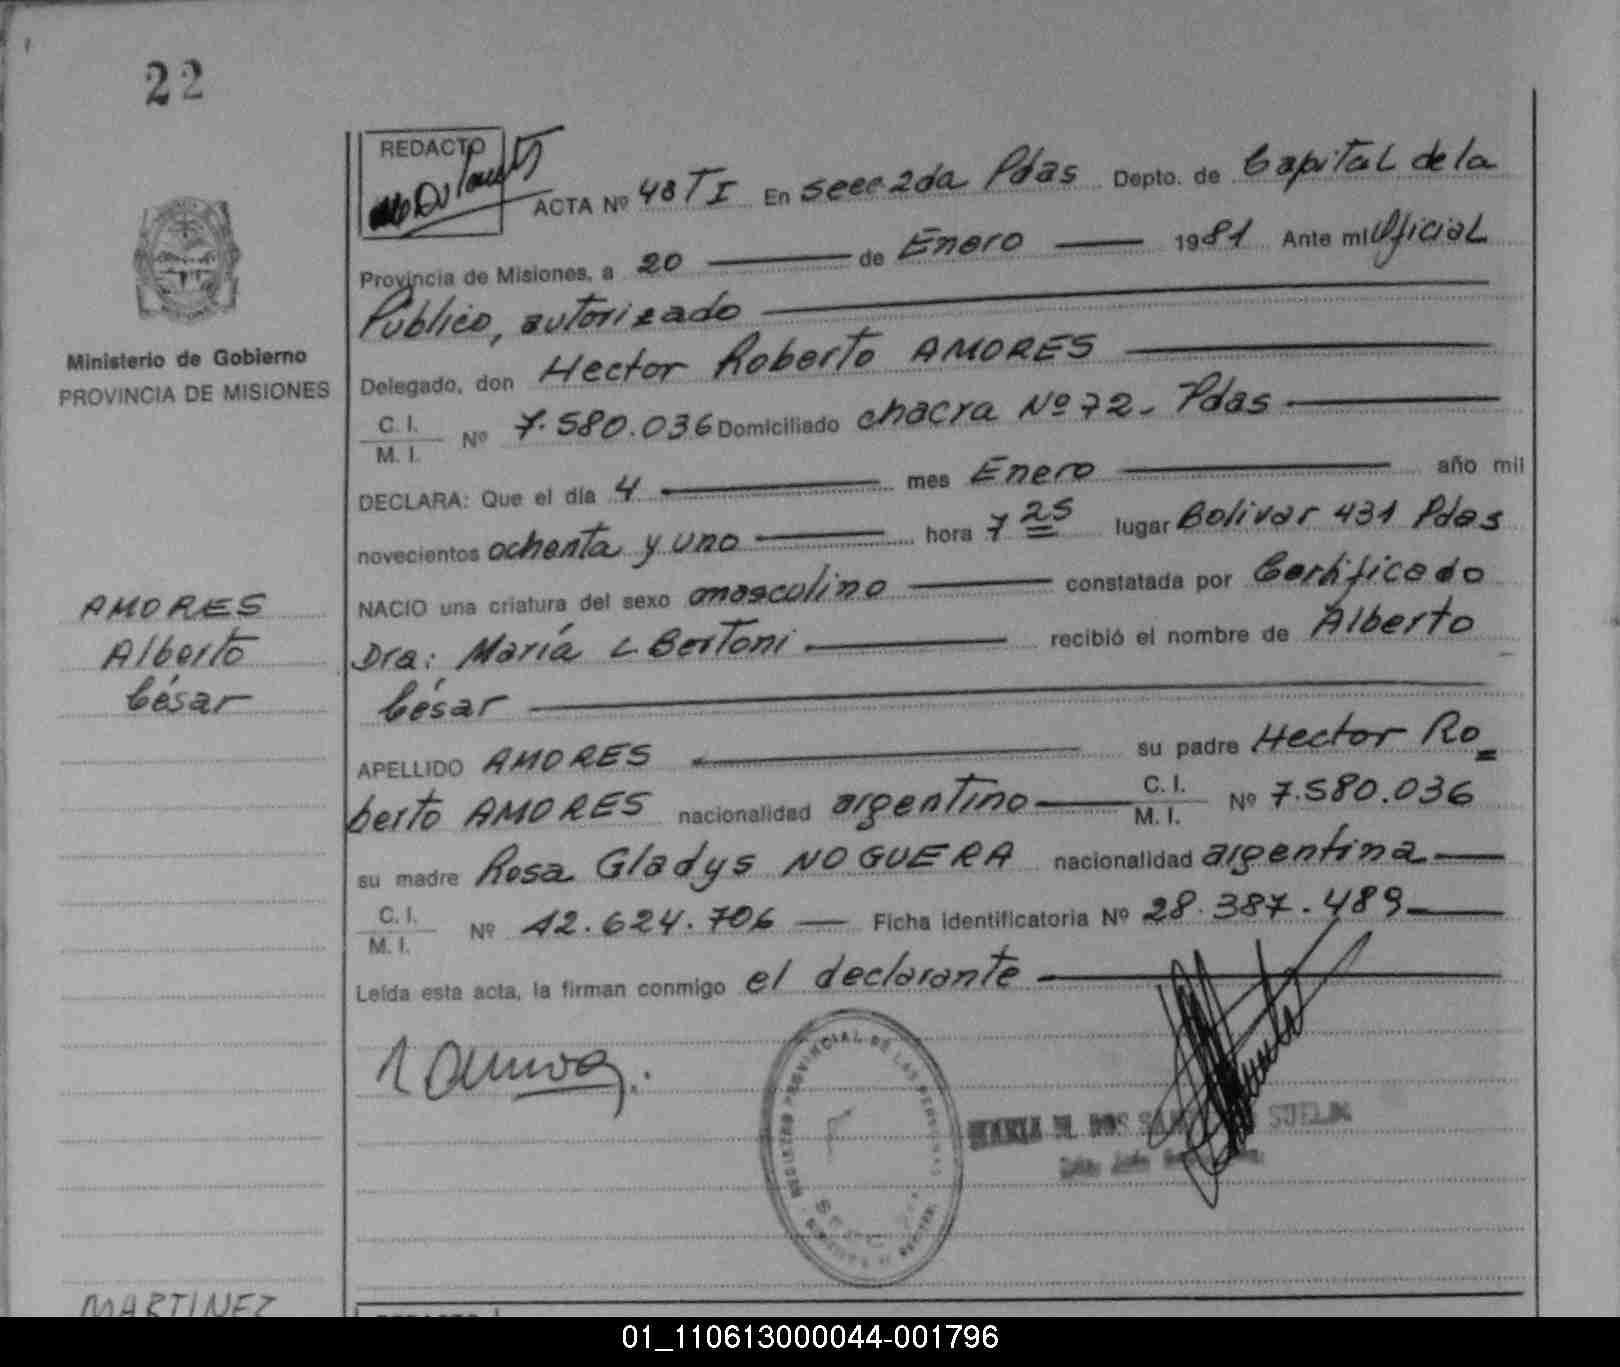 22
REDACTO
ACTA Nº 48 T I En secc 2da Pdas Depto. de Capital de la
Provincia de Misiones, a 20 de Enero 1981 Ante mi Oficial
Publico, autorizado
Delegado, don Hector Roberto AMORES
C. I.
M. I. Nº 7.580.036 Domiciliado chacra Nº 72- Pdas
DECLARA: Que el día 4 mes Enero año mil
novecientos ochenta y uno hora 7 25 lugar Bolivar 431 Pdas
NACIO una criatura del sexo masculino constatada por Certificado
Dra: María L Bertoni recibió el nombre de Alberto
César
APELLIDO AMORES su padre Hector Ro=
berto AMORES nacionalidad argentino C. I. M. I. Nº 7.580.036
su madre Rosa Gladys NOGUERA nacionalidad argentina
C. I.
M. I. Nº 12.624.706 Ficha identificatoria Nº 28.387.489
Leída esta acta, la firman conmigo el declarante
Ministerio de Gobierno
PROVINCIA DE MISIONES
AMORES
Alberto
César
REGISTRO PROVINCIAL DE LAS PERSONAS
MARIA M. DOS
MARTINEZ
01_110613000044-001796